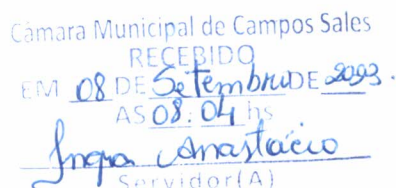 Câmara Municipal de Campos Sales
RECEBIDO
EM 08 DE Setembru DE 2023.
AS 08:04 hs
Anastácio
Servidor(A)